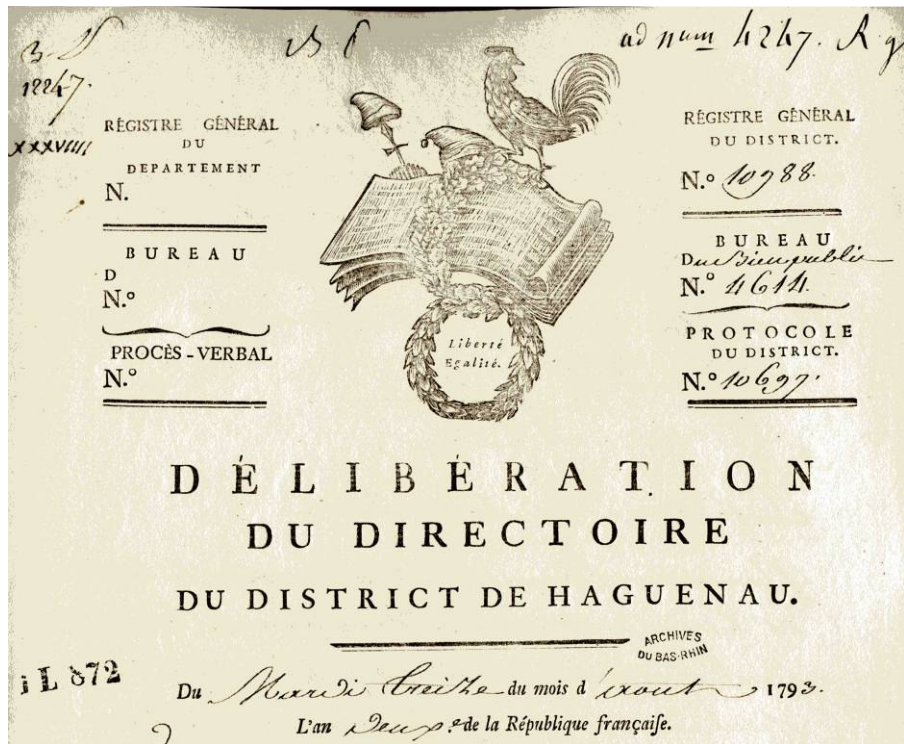 ad num 4247.
12247.
XXXVIIII
RÉGISTRE GÉNÉRAL
DU
DEPARTEMENT
N.
BUREAU
D
N.º
PROCÈS-VERBAL
N.º
Liberté
Egalité.
RÉGISTRE GÉNÉRAL
DU DISTRICT.
N.º 10988.
BUREAU
Du Bien public
N.º 4614.
PROTOCOLE
DU DISTRICT.
N.º 10697.
DÉLIBÉRATION
DU DIRECTOIRE
DU DISTRICT DE HAGUENAU.
ARCHIVES
DU BAS-RHIN
1 L 872
Du Mardi treize du mois d'aout 1793.
L'an Deux.e de la République françaiſe.